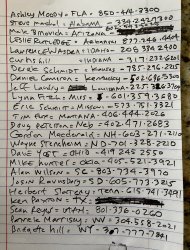 Ashley Moody - FLA. - 850-414-3300
Steve Marshall - Alabama - 334-242-7300
Mark Brnovich - Arizona -
Leslie Rutledge - ARKANSAS 877 244-4461
Lawrence Wasden - IDAHO - 208 334 2400
Curtis Hill - IN - 317-232-6201
Derek Schmidt - KANSAS - 785-296-2215
Daniel Cameron - Kentucky - 502-696-5300
Jeff Landry - Louisiana -
Lynn Fitch - Miss -
Eric Schmitt - Missouri - 573-751-3321
Tim Fox - Montana - 406-444-2026
Doug Peterson - Neb - 402-471-2683
Gordon Macdonald - NH - 603-271-
Wayne Stenehjem - ND - 701-328-2210
Dave Yost - OHIO -
Mike Hunter - OKLA - 405-521-3921
Alan Wilson - SC - 803-734-3970
Jason Ravnsborg - SD - 605-773-3215
Herbert Slatery - Tenn - 615-741-3491
Ken Paxton - TX -
Sean Reyes - UTAH - 801-
Patrick Morrisey - WV - 304-558-2021
Bridget Hill - WY - 307-777-7841